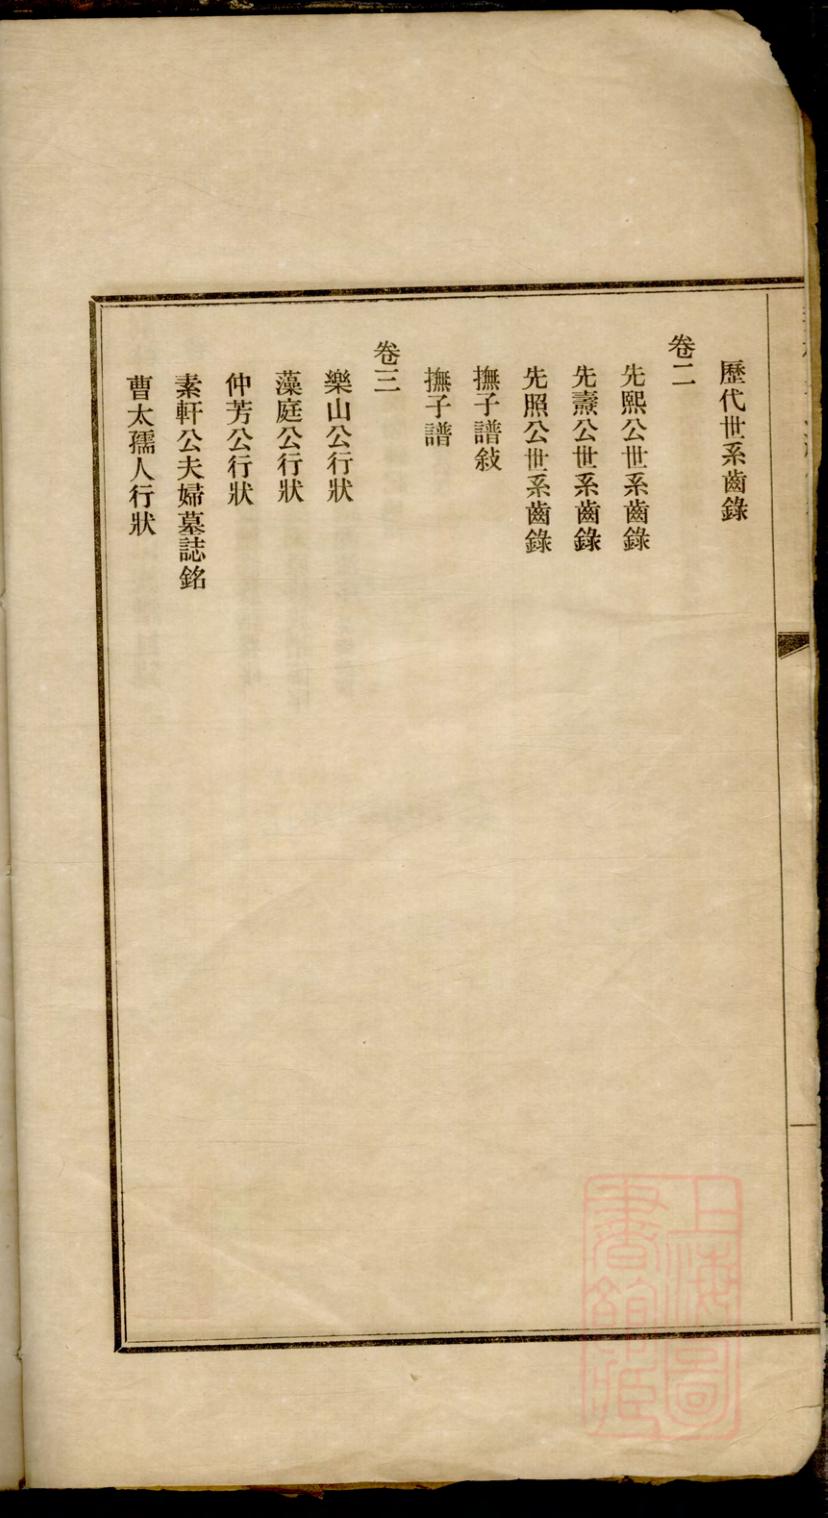 歷代世系齒錄
卷二
先熙公世系齒錄
先燾公世系齒錄
先照公世系齒錄
撫子譜敍
撫子譜
卷三
樂山公行狀
藻庭公行狀
仲芳公行狀
素軒公夫婦墓誌銘
曹太孺人行狀
上海圖書館藏